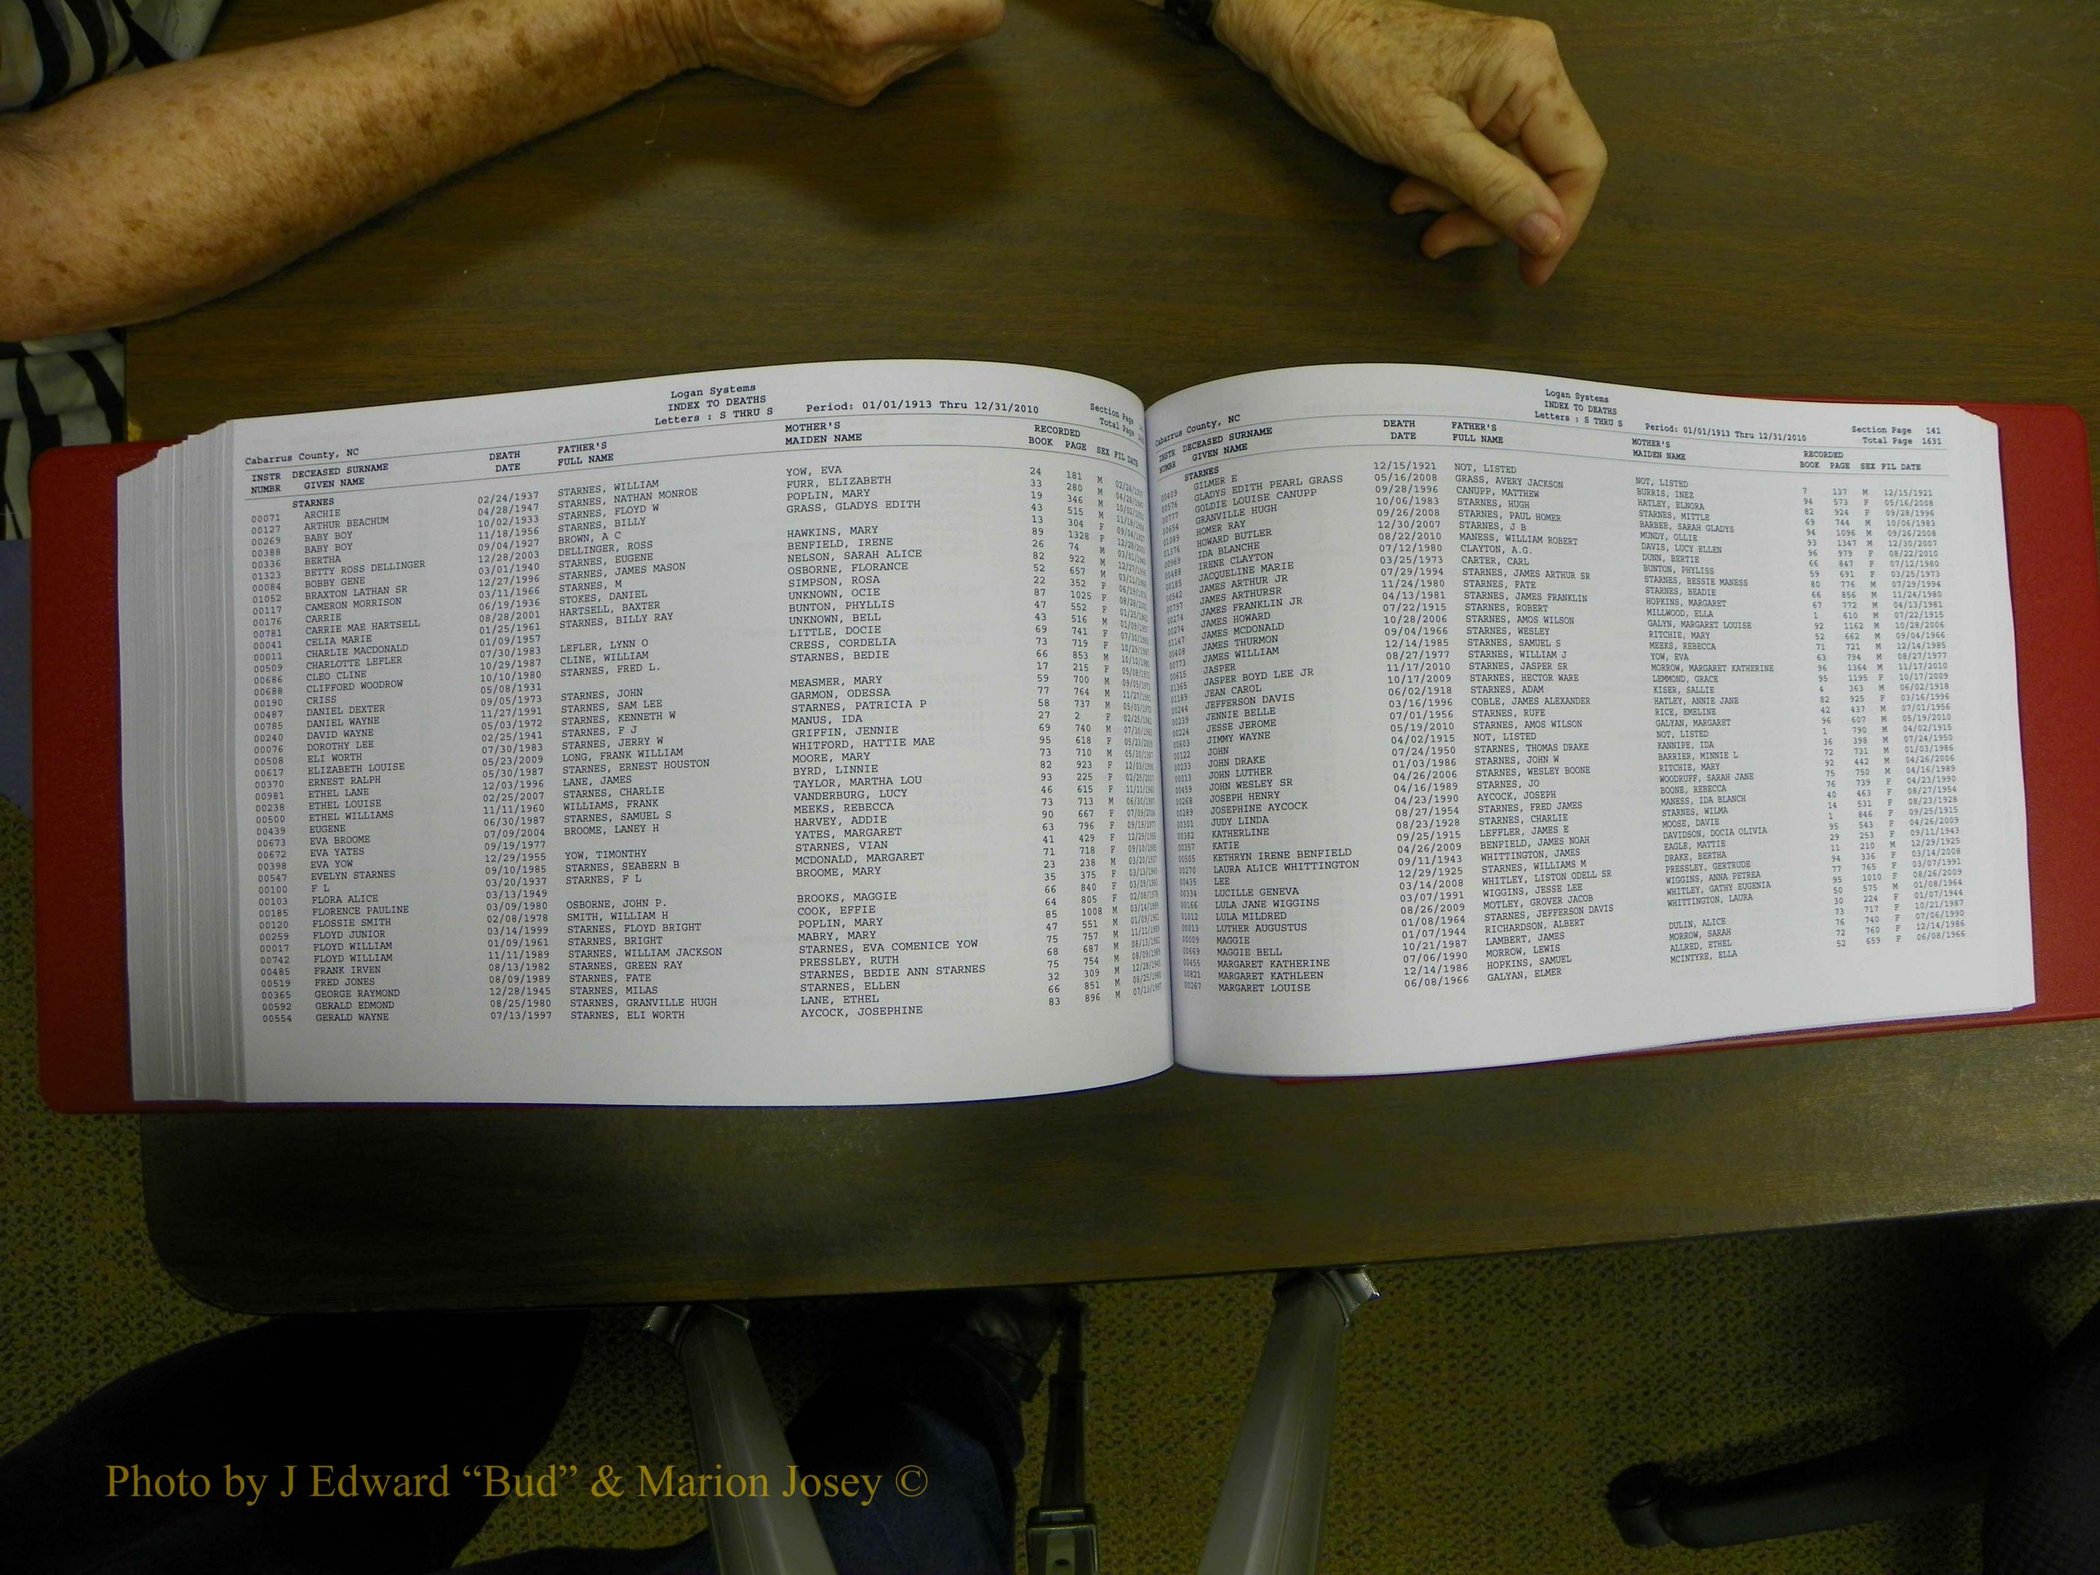 Logan Systems
INDEX TO DEATHS
Letters : S THRU S Period: 01/01/1913 Thru 12/31/2010
Cabarrus County, NC Section Page
Total Page
INSTR DECEASED SURNAME DEATH FATHER'S MOTHER'S RECORDED
NUMBR GIVEN NAME DATE FULL NAME MAIDEN NAME BOOK PAGE SEX FIL DATE
STARNES
00071 ARCHIE 02/24/1937 STARNES, WILLIAM YOW, EVA 24 181 M 02/24/1937
00127 ARTHUR BEACHUM 04/28/1947 STARNES, NATHAN MONROE FURR, ELIZABETH 33 280 M
00269 BABY BOY 10/02/1933 STARNES, FLOYD W POPLIN, MARY 19 346 M
00388 BABY BOY 11/18/1956 STARNES, BILLY GRASS, GLADYS EDITH 43 515 M
00336 BERTHA 09/04/1927 BROWN, A C 13 304 F
01323 BETTY ROSS DELLINGER 12/28/2003 DELLINGER, ROSS HAWKINS, MARY 89 1328 F
00084 BOBBY GENE 03/01/1940 STARNES, EUGENE BENFIELD, IRENE 26 74 M
01052 BRAXTON LATHAN SR 12/27/1996 STARNES, JAMES MASON NELSON, SARAH ALICE 82 922 M
00117 CAMERON MORRISON 03/11/1966 STARNES, M OSBORNE, FLORANCE 52 657 M
00176 CARRIE 06/19/1936 STOKES, DANIEL SIMPSON, ROSA 22 352 F
00781 CARRIE MAE HARTSELL 08/28/2001 HARTSELL, BAXTER UNKNOWN, OCIE 87 1025 F
00041 CELIA MARIE 01/25/1961 STARNES, BILLY RAY BUNTON, PHYLLIS 47 552 F
00011 CHARLIE MACDONALD 01/09/1957 UNKNOWN, BELL 43 516 M
00509 CHARLOTTE LEFLER 07/30/1983 LEFLER, LYNN O LITTLE, DOCIE 69 741 F
00686 CLEO CLINE 10/29/1987 CLINE, WILLIAM CRESS, CORDELIA 73 719 F
00688 CLIFFORD WOODROW 10/10/1980 STARNES, FRED L. STARNES, BEDIE 66 853 M
00190 CRISS 05/08/1931 17 215 F
00487 DANIEL DEXTER 09/05/1973 STARNES, JOHN MEASMER, MARY 59 700 M
00785 DANIEL WAYNE 11/27/1991 STARNES, SAM LEE GARMON, ODESSA 77 764 M
00240 DAVID WAYNE 05/03/1972 STARNES, KENNETH W STARNES, PATRICIA P 58 737 M
00076 DOROTHY LEE 02/25/1941 STARNES, F J MANUS, IDA 27 2 F
00508 ELI WORTH 07/30/1983 STARNES, JERRY W GRIFFIN, JENNIE 69 740 M
00617 ELIZABETH LOUISE 05/23/2009 LONG, FRANK WILLIAM WHITFORD, HATTIE MAE 95 618 F
00370 ERNEST RALPH 05/30/1987 STARNES, ERNEST HOUSTON MOORE, MARY 73 710 M
00981 ETHEL LANE 12/03/1996 LANE, JAMES BYRD, LINNIE 82 923 F
00238 ETHEL LOUISE 02/25/2007 STARNES, CHARLIE TAYLOR, MARTHA LOU 93 225 F
00500 ETHEL WILLIAMS 11/11/1960 WILLIAMS, FRANK VANDERBURG, LUCY 46 615 F
00439 EUGENE 06/30/1987 STARNES, SAMUEL S MEEKS, REBECCA 73 713 M
00673 EVA BROOME 07/09/2004 BROOME, LANEY H HARVEY, ADDIE 90 667 F
00672 EVA YATES 09/19/1977 YATES, MARGARET 63 796 F
00398 EVA YOW 12/29/1955 YOW, TIMONTHY STARNES, VIAN 41 429 F
00547 EVELYN STARNES 09/10/1985 STARNES, SEABERN B MCDONALD, MARGARET 71 718 F
00100 F L 03/20/1937 STARNES, F L BROOME, MARY 23 238 M
00103 FLORA ALICE 03/13/1949 35 375 F
00185 FLORENCE PAULINE 03/09/1980 OSBORNE, JOHN P. BROOKS, MAGGIE 66 840 F
00120 FLOSSIE SMITH 02/08/1978 SMITH, WILLIAM H COOK, EFFIE 64 805 F
00259 FLOYD JUNIOR 03/14/1999 STARNES, FLOYD BRIGHT POPLIN, MARY 85 1008 M
00017 FLOYD WILLIAM 01/09/1961 STARNES, BRIGHT MABRY, MARY 47 551 M
00742 FLOYD WILLIAM 11/11/1989 STARNES, WILLIAM JACKSON STARNES, EVA COMENICE YOW 75 757 M
00485 FRANK IRVEN 08/13/1982 STARNES, GREEN RAY PRESSLEY, RUTH 68 687 M
00519 FRED JONES 08/09/1989 STARNES, FATE STARNES, BEDIE ANN STARNES 75 754 M
00365 GEORGE RAYMOND 12/28/1945 STARNES, MILAS STARNES, ELLEN 32 309 M
00592 GERALD EDMOND 08/25/1980 STARNES, GRANVILLE HUGH LANE, ETHEL 66 851 M
00554 GERALD WAYNE 07/13/1997 STARNES, ELI WORTH AYCOCK, JOSEPHINE 83 896 M
Logan Systems
INDEX TO DEATHS
Letters : S THRU S Period: 01/01/1913 Thru 12/31/2010
Cabarrus County, NC Section Page 141
Total Page 1631
INSTR DECEASED SURNAME DEATH FATHER'S MOTHER'S RECORDED
NUMBR GIVEN NAME DATE FULL NAME MAIDEN NAME BOOK PAGE SEX FIL DATE
STARNES
00409 GILMER E 12/15/1921 NOT, LISTED NOT, LISTED 7 137 M 12/15/1921
00576 GLADYS EDITH PEARL GRASS 05/16/2008 GRASS, AVERY JACKSON BURRIS, INEZ 94 573 F 05/16/2008
00777 GOLDIE LOUISE CANUPP 09/28/1996 CANUPP, MATTHEW HATLEY, ELNORA 82 924 F 09/28/1996
00694 GRANVILLE HUGH 10/06/1983 STARNES, HUGH STARNES, MITTLE 69 744 M 10/06/1983
01089 HOMER RAY 09/26/2008 STARNES, PAUL HOMER BARBEE, SARAH GLADYS 94 1096 M 09/26/2008
01376 HOWARD BUTLER 12/30/2007 STARNES, J B MUNDY, OLLIE 93 1347 M 12/30/2007
00969 IDA BLANCHE 08/22/2010 MANESS, WILLIAM ROBERT DAVIS, LUCY ELLEN 96 979 F 08/22/2010
00488 IRENE CLAYTON 07/12/1980 CLAYTON, A.G. DUNN, BERTIE 66 847 F 07/12/1980
00185 JACQUELINE MARIE 03/25/1973 CARTER, CARL BUNTON, PHYLISS 59 691 F 03/25/1973
00542 JAMES ARTHUR JR 07/29/1994 STARNES, JAMES ARTHUR SR STARNES, BESSIE MANESS 80 776 M 07/29/1994
00797 JAMES ARTHURSR 11/24/1980 STARNES, FATE STARNES, BEADIE 66 856 M 11/24/1980
00274 JAMES FRANKLIN JR 04/13/1981 STARNES, JAMES FRANKLIN HOPKINS, MARGARET 67 772 M 04/13/1981
00274 JAMES HOWARD 07/22/1915 STARNES, ROBERT MILLWOOD, ELLA 1 610 M 07/22/1915
01147 JAMES MCDONALD 10/28/2006 STARNES, AMOS WILSON GALYN, MARGARET LOUISE 92 1162 M 10/28/2006
00408 JAMES THURMON 09/04/1966 STARNES, WESLEY RITCHIE, MARY 52 662 M 09/04/1966
00773 JAMES WILLIAM 12/14/1985 STARNES, SAMUEL S MEEKS, REBECCA 71 721 M 12/14/1985
00615 JASPER 08/27/1977 STARNES, WILLIAM J YOW, EVA 63 794 M 08/27/1977
01365 JASPER BOYD LEE JR 11/17/2010 STARNES, JASPER SR MORROW, MARGARET KATHERINE 96 1364 M 11/17/2010
01189 JEAN CAROL 10/17/2009 STARNES, HECTOR WARE LEMMOND, GRACE 95 1195 F 10/17/2009
00244 JEFFERSON DAVIS 06/02/1918 STARNES, ADAM KISER, SALLIE 4 363 M 06/02/1918
00239 JENNIE BELLE 03/16/1996 COBLE, JAMES ALEXANDER HATLEY, ANNIE JANE 82 925 F 03/16/1996
00224 JESSE JEROME 07/01/1956 STARNES, RUFE RICE, EMELINE 42 437 M 07/01/1956
00603 JIMMY WAYNE 05/19/2010 STARNES, AMOS WILSON GALYAN, MARGARET 96 607 M 05/19/2010
00122 JOHN 04/02/1915 NOT, LISTED NOT, LISTED 1 790 M 04/02/1915
00233 JOHN DRAKE 07/24/1950 STARNES, THOMAS DRAKE KANNIPE, IDA 36 398 M 07/24/1950
00013 JOHN LUTHER 01/03/1986 STARNES, JOHN W BARRIER, MINNIE L 72 731 M 01/03/1986
00459 JOHN WESLEY SR 04/26/2006 STARNES, WESLEY BOONE RITCHIE, MARY 92 442 M 04/26/2006
00268 JOSEPH HENRY 04/16/1989 STARNES, JO WOODRUFF, SARAH JANE 75 750 M 04/16/1989
00289 JOSEPHINE AYCOCK 04/23/1990 AYCOCK, JOSEPH BOONE, REBECCA 76 739 F 04/23/1990
00301 JUDY LINDA 08/27/1954 STARNES, FRED JAMES MANESS, IDA BLANCH 40 463 F 08/27/1954
00382 KATHERLINE 08/23/1928 STARNES, CHARLIE STARNES, WILMA 14 531 F 08/23/1928
00357 KATIE 09/25/1915 LEFFLER, JAMES E MOOSE, DAVIE 1 846 F 09/25/1915
00505 KETHRYN IRENE BENFIELD 04/26/2009 BENFIELD, JAMES NOAH DAVIDSON, DOCIA OLIVIA 95 543 F 04/26/2009
00270 LAURA ALICE WHITTINGTON 09/11/1943 WHITTINGTON, JAMES EAGLE, MATTIE 29 253 F 09/11/1943
00435 LEE 12/29/1925 STARNES, WILLIAMS M DRAKE, BERTHA 11 210 M 12/29/1925
00334 LUCILLE GENEVA 03/14/2008 WHITLEY, LISTON ODELL SR PRESSLEY, GERTRUDE 94 336 F 03/14/2008
00166 LULA JANE WIGGINS 03/07/1991 WIGGINS, JESSE LEE WIGGINS, ANNA PETREA 77 765 F 03/07/1991
01012 LULA MILDRED 08/26/2009 MOTLEY, GROVER JACOB WHITLEY, GATHY EUGENIA 95 1010 F 08/26/2009
00013 LUTHER AUGUSTUS 01/08/1964 STARNES, JEFFERSON DAVIS WHITTINGTON, LAURA 50 575 M 01/08/1964
00009 MAGGIE 01/07/1944 RICHARDSON, ALBERT 30 224 F 01/07/1944
00669 MAGGIE BELL 10/21/1987 LAMBERT, JAMES DULIN, ALICE 73 717 F 10/21/1987
00455 MARGARET KATHERINE 07/06/1990 MORROW, LEWIS MORROW, SARAH 76 740 F 07/06/1990
00821 MARGARET KATHLEEN 12/14/1986 HOPKINS, SAMUEL ALLRED, ETHEL 72 760 F 12/14/1986
00267 MARGARET LOUISE 06/08/1966 GALYAN, ELMER MCINTYRE, ELLA 52 659 F 06/08/1966
Photo by J Edward “Bud” & Marion Josey ©